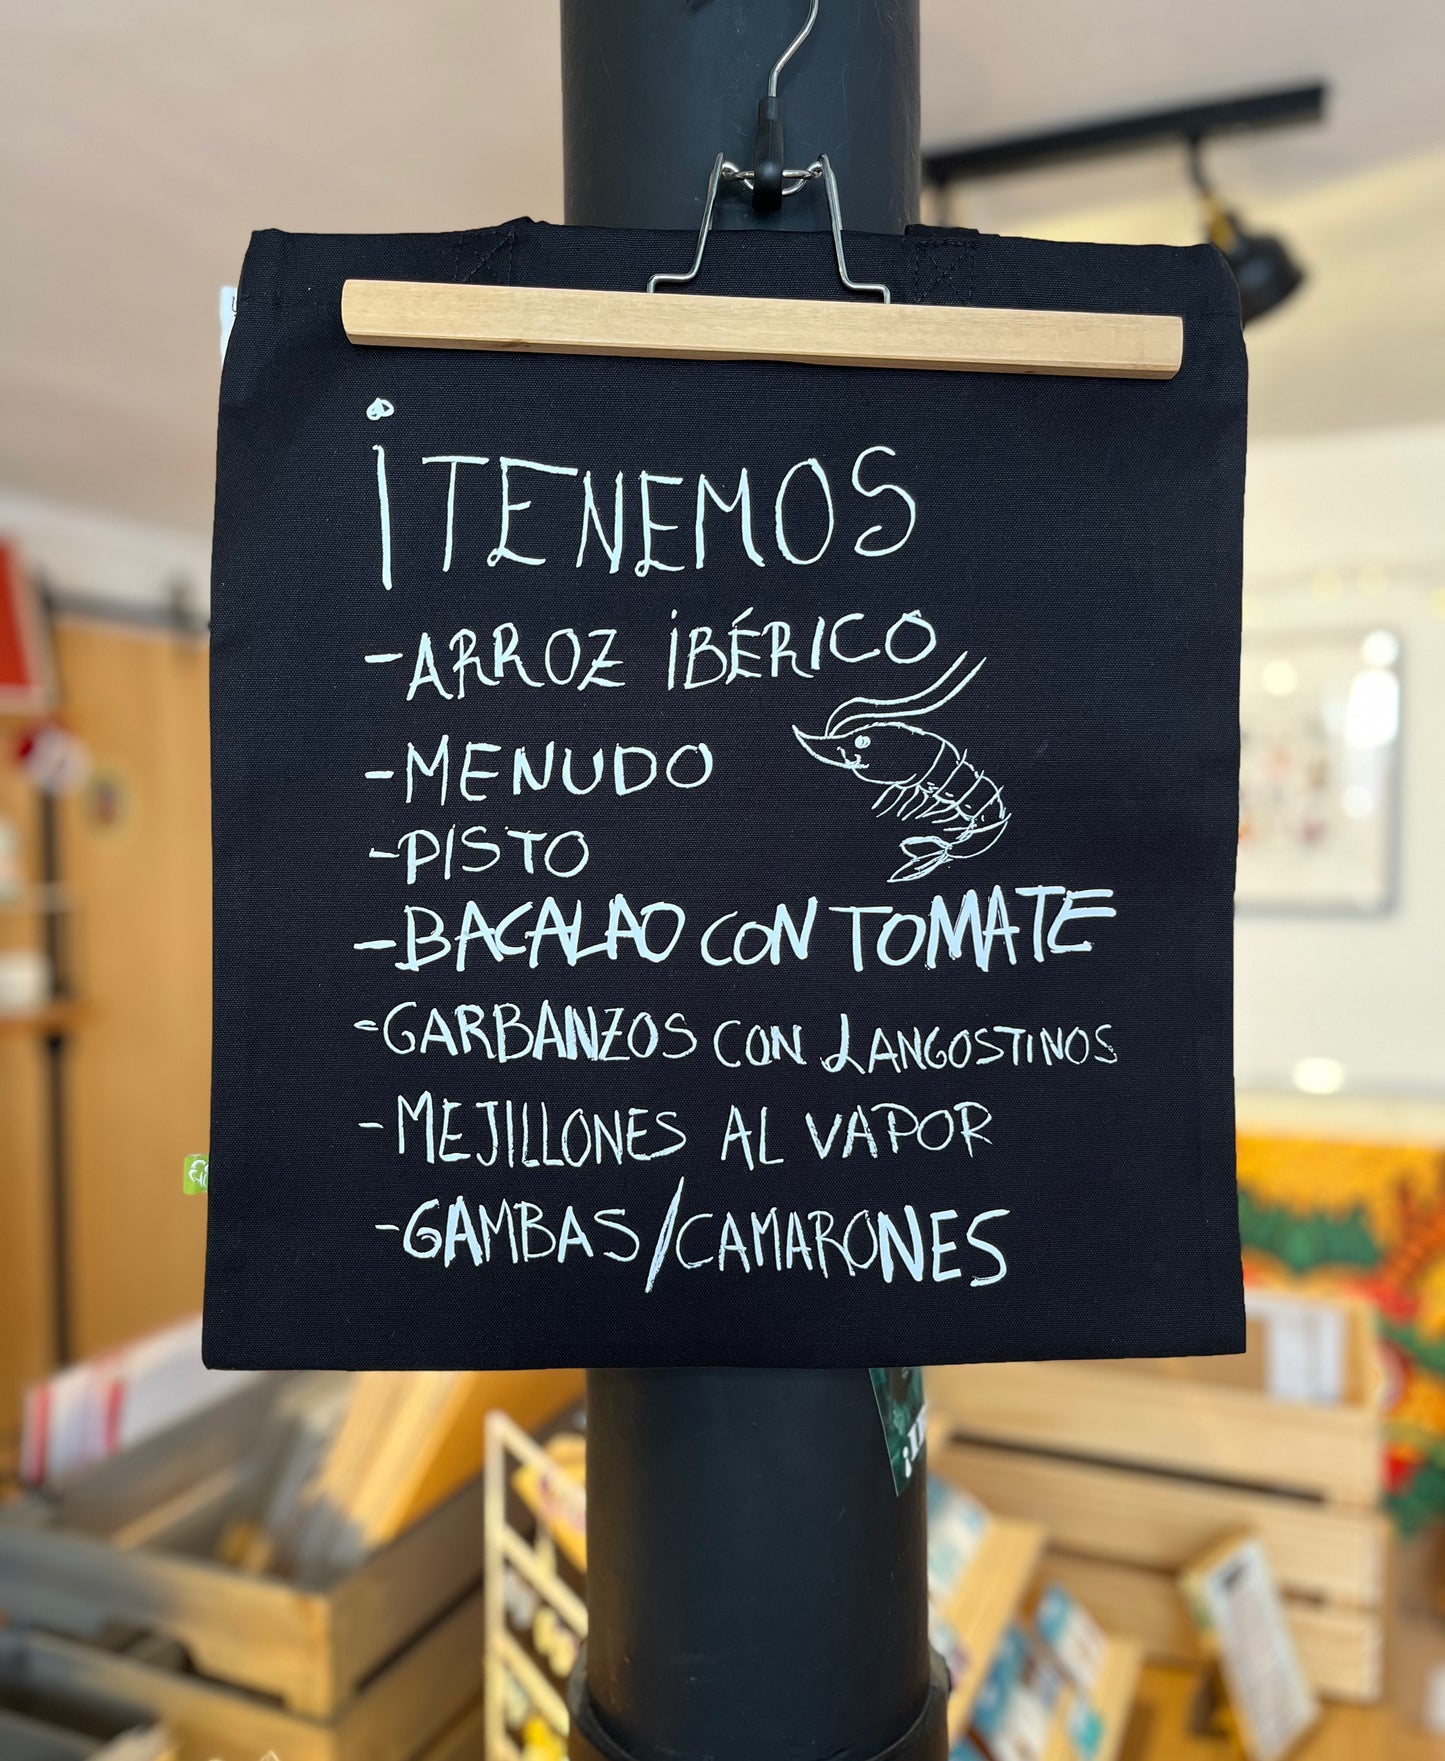 ¡TENEMOS
-ARROZ IBÉRICO
-MENUDO
-PISTO
-BACALAO CON TOMATE
-GARBANZOS CON LANGOSTINOS
-MEJILLONES AL VAPOR
-GAMBAS/CAMARONES